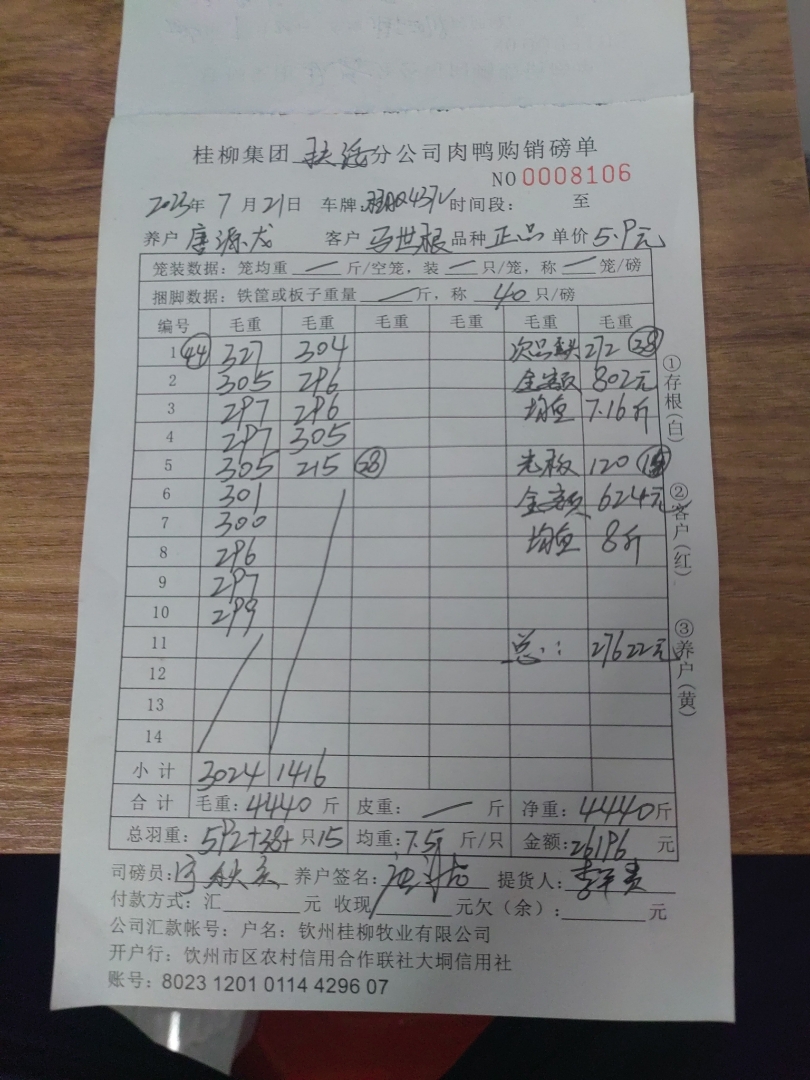 桂柳集团 分公司肉鸭购销磅单
NO 0008106
2023年 7 月 21日 车牌: 时间段: 至
养户 唐源龙 客户 马世根 品种 正品 单价 5.9元
笼装数据: 笼均重 — 斤/空笼, 装 — 只/笼, 称 — 笼/磅
捆脚数据: 铁筐或板子重量 — 斤, 称 40 只/磅
编号 毛重 毛重 毛重 毛重 毛重 毛重
1 44 327 304 次品 272 38
2 305 296 金额 802元
3 297 296 均重 7.16斤
4 297 305
5 305 215 38 光板 120 15
6 301 金额 624元
7 300 均重 8斤
8 296
9 297
10 299
11 总: 27622元
12
13
14
小计 3024 1416
合计 毛重: 4440 斤 皮重: — 斤 净重: 4440斤
总羽重: 592+38+ 只15 均重: 7.5 斤/只 金额: 26196 元
司磅员: 养户签名: 提货人:
付款方式: 汇 元 收现 元欠(余): 元
公司汇款帐号: 户名: 钦州桂柳牧业有限公司
开户行: 钦州市区农村信用合作联社大垌信用社
账号: 8023 1201 0114 4296 07
①存根(白)
②客户(红)
③养户(黄)